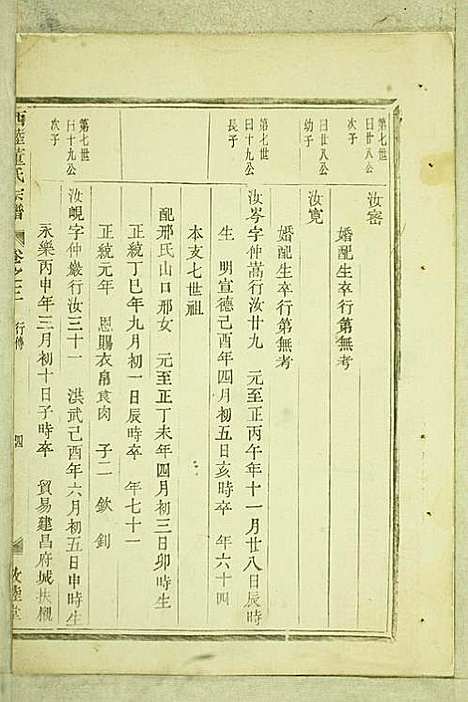 第七世
曰廿八公
次子
汝密
婚配生卒行第無考
曰廿八公
幼子
汝寬
婚配生卒行第無考
第七世
曰十九公
長子
汝岑字仲嵩行汝廿九 元至正丙午年十一月廿八日辰時
生 明宣德己酉年四月初五日亥時卒 年六十四
本支七世祖
配邢氏山口邢女 元至正丁未年四月初三日卯時生
正統丁巳年九月初一日辰時卒 年七十一
正統元年 恩賜衣帛食肉 子二 欽 釗
第七世
曰十九公
次子
汝峴字仲巖行汝三十一 洪武己酉年六月初五日申時生
永樂丙申年三月初十日子時卒 貿易建昌府城扶櫬
西陸董氏宗譜 卷之二 行傳 四